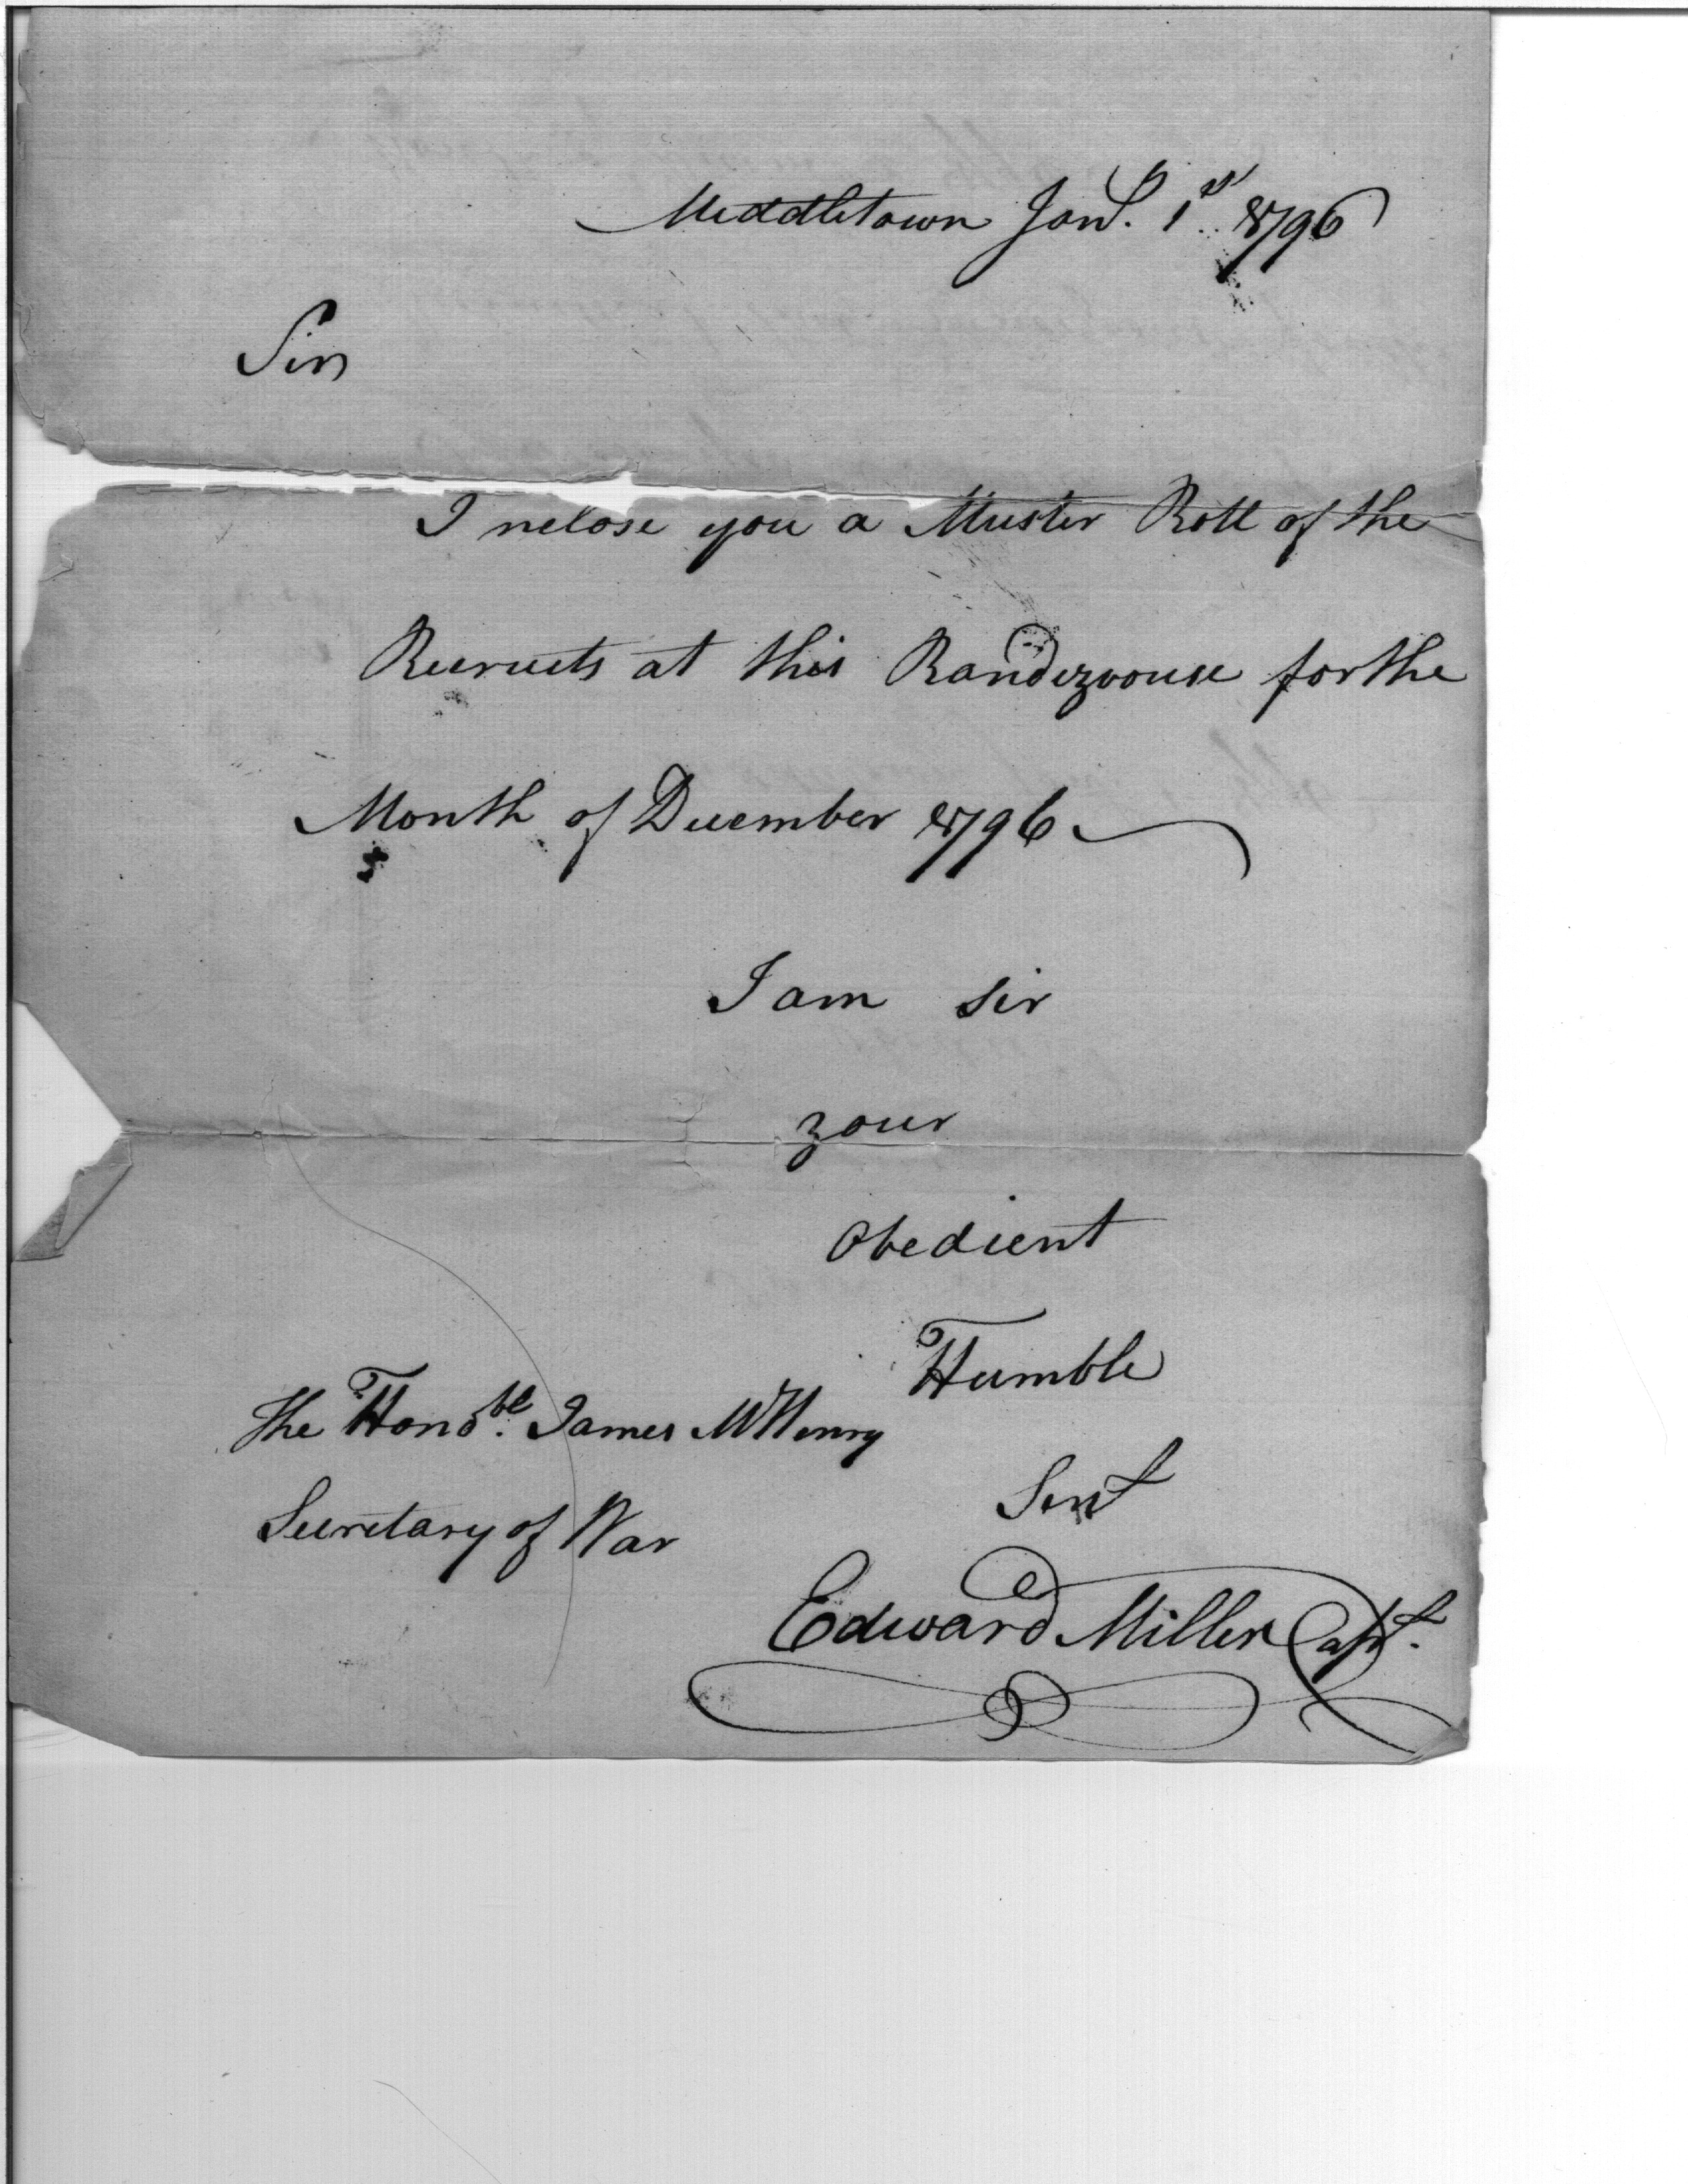 Middletown Jany. 1st. 1796
Sir
I nclose you a Muster Roll of the
Recruits at this Randezvouse for the
Month of December 1796
I am sir
your
Obedient
Humble
The Honobl. James McHenry
Servt
Secretary of War
Edward Miller Capt.